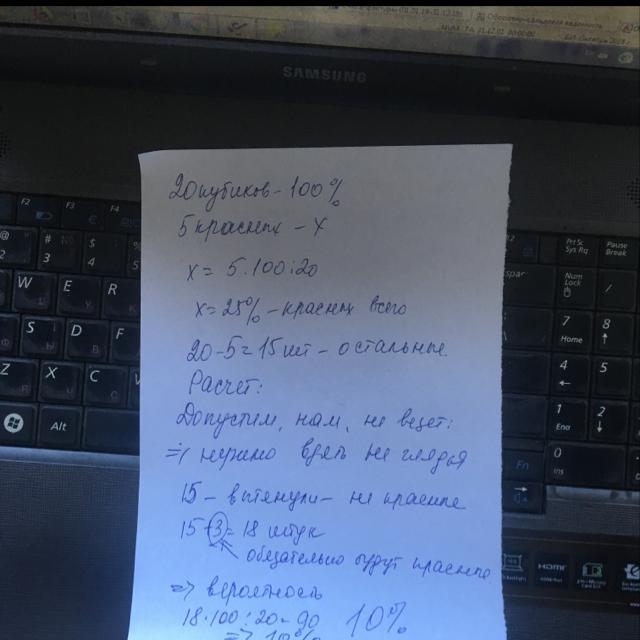 SAMSUNG
20 кубиков - 100%
5 красных - x
x = 5 . 100 : 20
x = 25% - красных всего
20 - 5 = 15 шт - остальные
Расчет:
Допустим, нам, не везет:
=> нужно взять не глядя
15 - вытянули - не красные
15 + 3 = 18 штук
обязательно будут красные
=> вероятность
18 . 100 : 20 = 90 10%
=> 10%
F2
F3
F4
@ 2
# 3
$ 4
W
E
R
S
D
F
Z
X
C
Alt
PrtSc Sys Rq
Pause Break
Num Lock
/
7 Home
8
4
5
1 End
2
0 Ins
Fn
HDMI